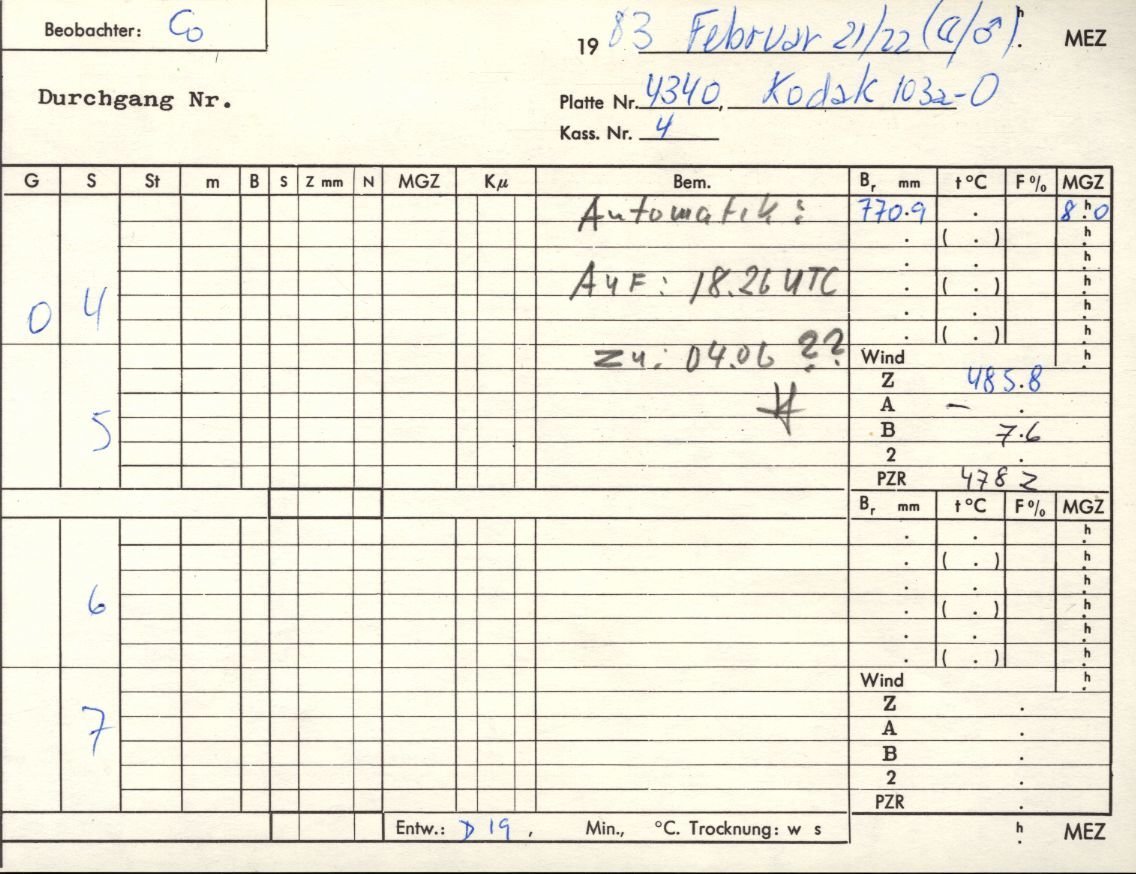 Beobachter: Co
1983 Februar 21/22 (☾/♂) h. MEZ
Durchgang Nr.
Platte Nr. 4340, Kodak 103a-O
Kass. Nr. 4
G S St m B S Z mm N MGZ Kμ Bem. Br mm t °C F % MGZ
Automatik: 770.9 . 8h.0
. ( . ) h.
. . h.
Auf: 18.26 UTC . ( . ) h.
0 4 . . h.
. ( . ) h.
Zu: 04.06 ?? Wind h.
Z 485.8
A – .
5 B 7.6
2 .
PZR 478 2
Br mm t °C F % MGZ
. . h.
. ( . ) h.
. . h.
6 . ( . ) h.
. . h.
. ( . ) h.
Wind h.
Z .
7 A .
B .
2 .
PZR .
Entw.: D 19, Min., °C. Trocknung: w s h. MEZ